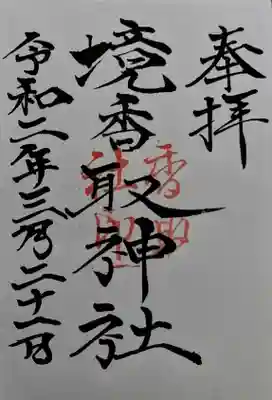 奉拝
境香取神社
令和二年三月二十一日